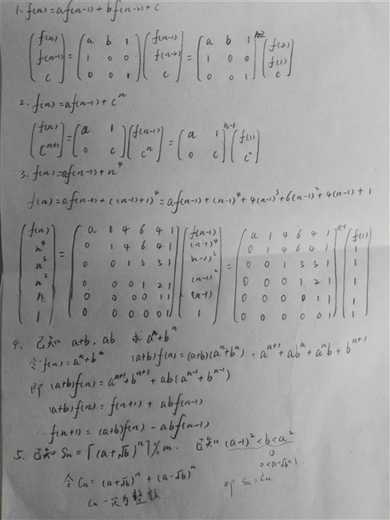 1. f(n)=af(n-1)+bf(n-2)+c
( f(n) f(n-1) c ) = ( a b 1 1 0 0 0 0 1 ) ( f(n-1) f(n-2) c ) = ( a b 1 1 0 0 0 0 1 )^n-2 ( f(2) f(1) c )
2. f(n)=af(n-1)+c^n
( f(n) c^n+1 ) = ( a 1 0 c ) ( f(n-1) c^n ) = ( a 1 0 c )^n-1 ( f(1) c^2 )
3. f(n)=af(n-1)+n^4
f(n)=af(n-1)+(n-1+1)^4=af(n-1)+(n-1)^4+4(n-1)^3+6(n-1)^2+4(n-1)+1
( f(n) n^4 n^3 n^2 n 1 ) = ( a 1 4 6 4 1 0 1 4 6 4 1 0 0 1 3 3 1 0 0 0 1 2 1 0 0 0 0 1 1 0 0 0 0 0 1 ) ( f(n-1) (n-1)^4 (n-1)^3 (n-1)^2 (n-1) 1 ) = ( a 1 4 6 4 1 0 1 4 6 4 1 0 0 1 3 3 1 0 0 0 1 2 1 0 0 0 0 1 1 0 0 0 0 0 1 )^n-1 ( f(1) 1 1 1 1 1 )
4. 已知 a+b, ab 求 a^n+b^n
令f(n)=a^n+b^n (a+b)f(n)=(a+b)(a^n+b^n)=a^n+1+ab^n+a^nb+b^n+1
即 (a+b)f(n)=a^n+1+b^n+1+ab(a^n-1+b^n-1)
(a+b)f(n)=f(n+1)+abf(n-1)
f(n+1)=(a+b)f(n)-abf(n-1)
5. 已知 Sn=⌈(a+√b)^n⌉%m. 已知 (a-1)^2<b<a^2
令Cn=(a+√b)^n+(a-√b)^n
Cn 一定为整数
即 Sn=Cn